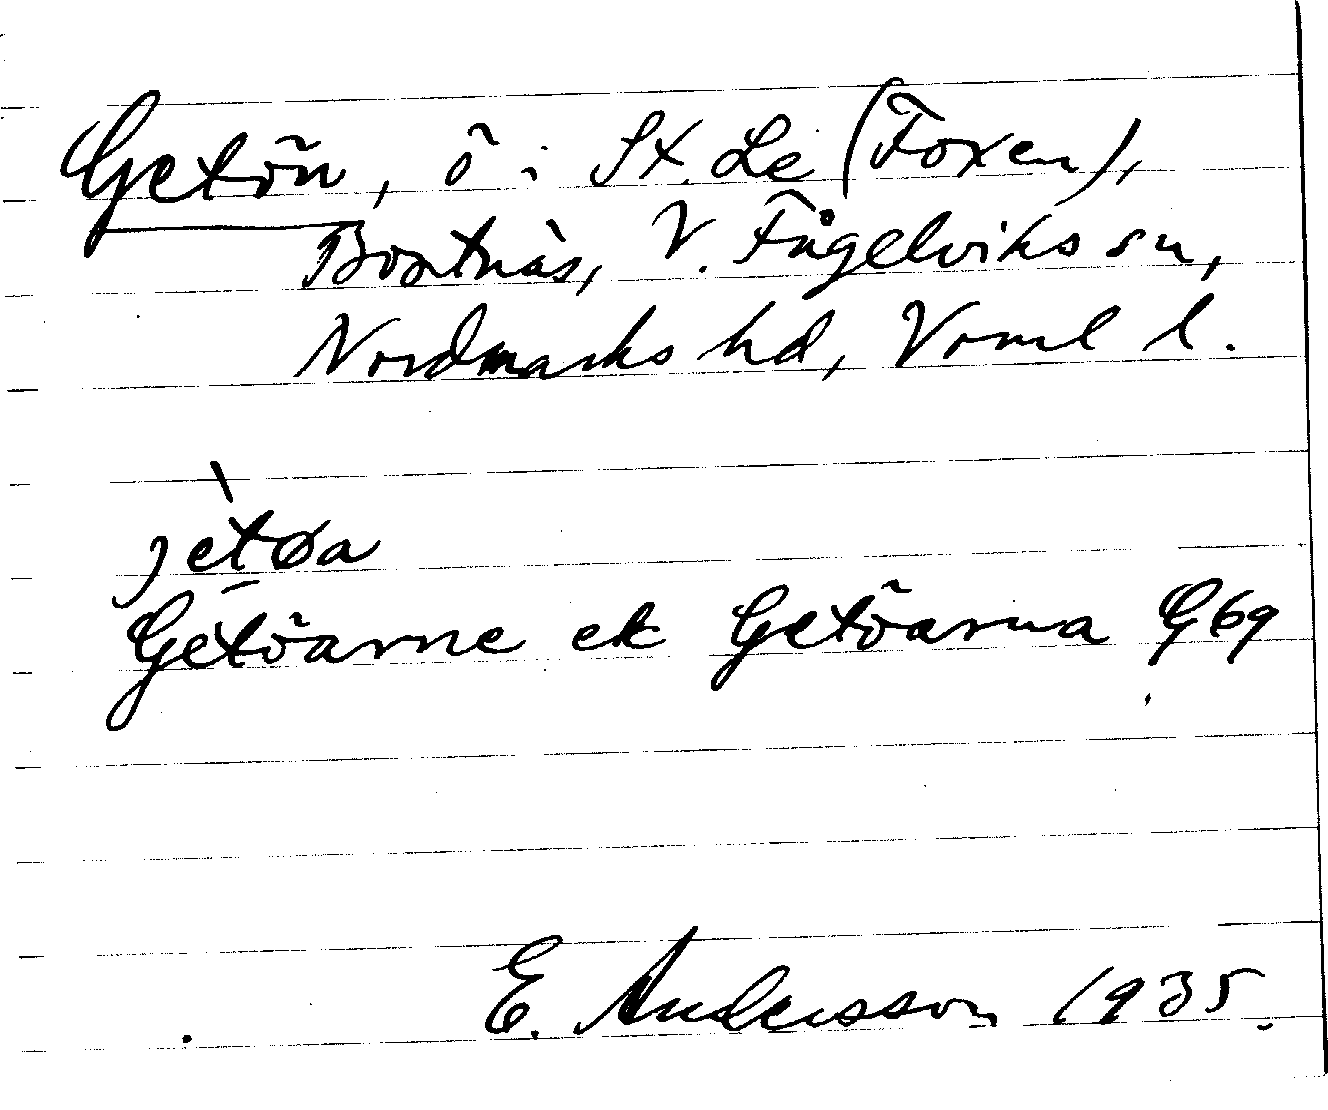 Getön, ö i St. Le (Foxen),
Bortnäs, V. Fågelviks sn,
Nordmarks hd, Vrml l.
jètøa
Getöarne ek Getöarna G69
E. Andersson 1935.